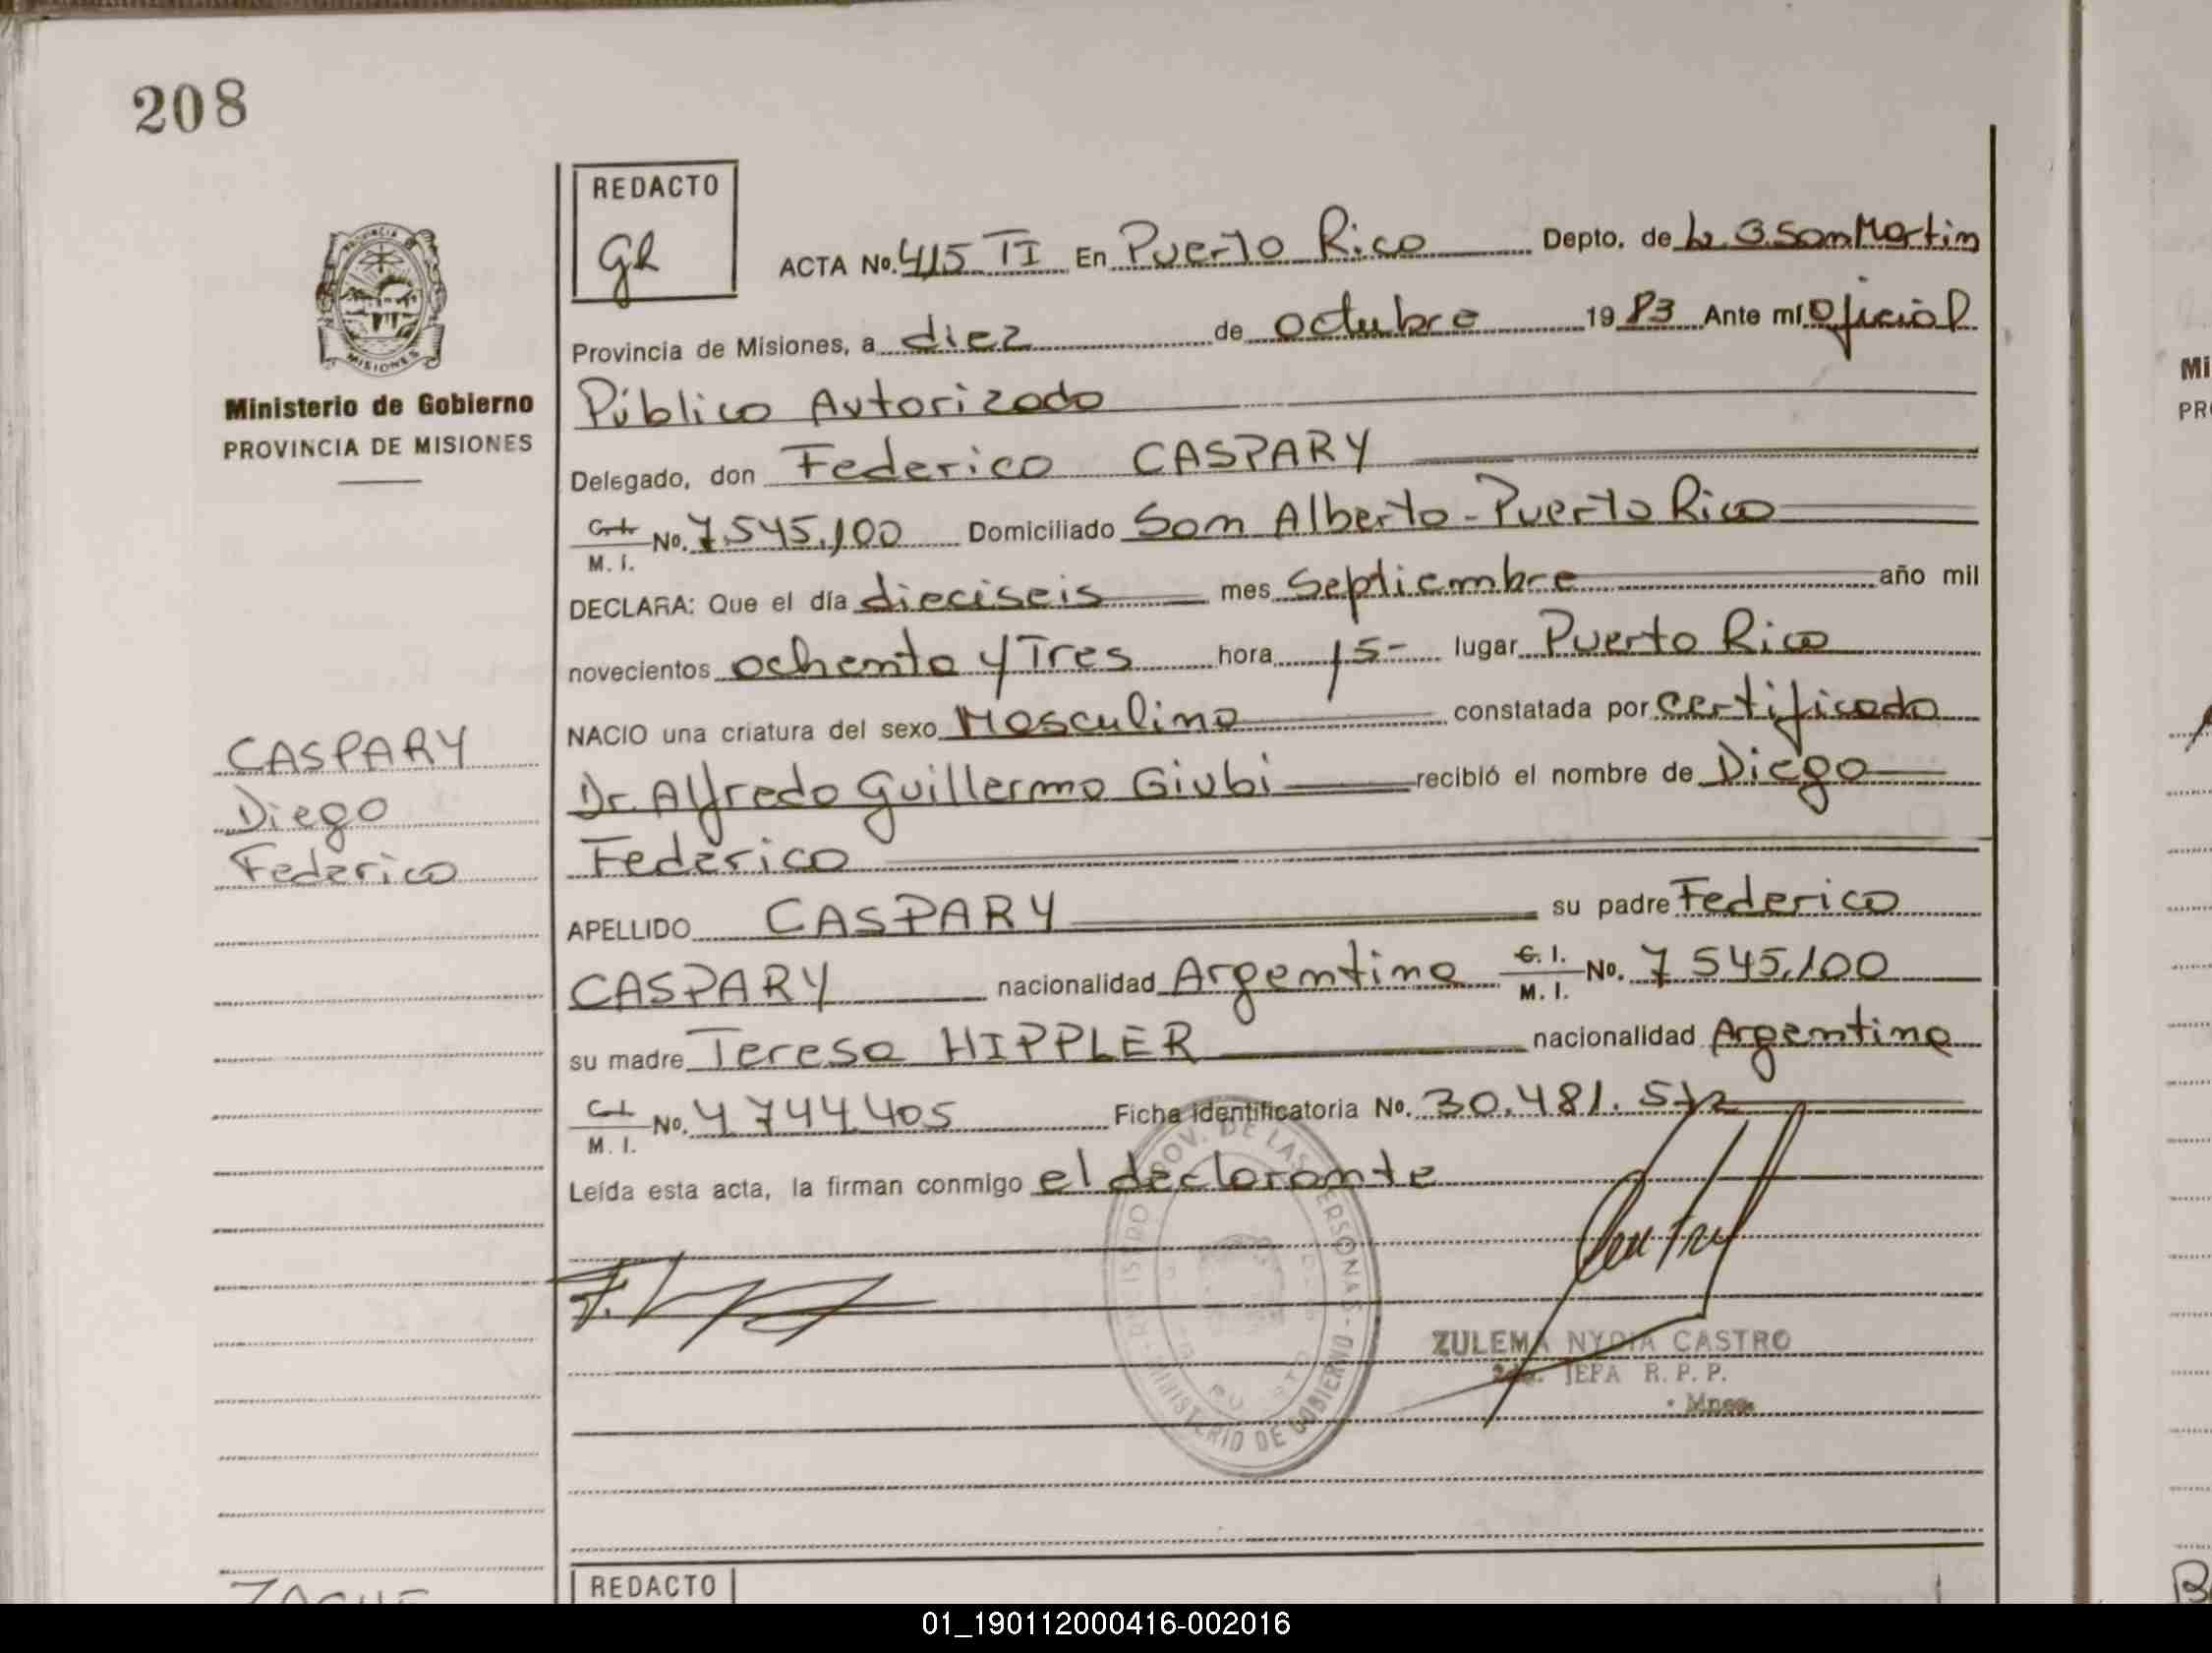 208
REDACTO
ACTA No. 415 TI En Puerto Rico Depto. de L. G. San Martin
Provincia de Misiones, a diez de octubre 1983 Ante mí Oficial
Público Autorizado
Ministerio de Gobierno
PROVINCIA DE MISIONES
Delegado, don Federico CASPARY
C.I. M. I. No. 7.545.100 Domiciliado San Alberto - Puerto Rico
DECLARA: Que el día dieciseis mes Septiembre año mil
novecientos ochenta y Tres hora 15- lugar Puerto Rico
NACIO una criatura del sexo Masculino constatada por certificado
Dr. Alfredo Guillermo Giubi recibió el nombre de Diego
Federico
CASPARY
Diego
Federico
APELLIDO CASPARY su padre Federico
CASPARY nacionalidad Argentina C. I. M. I. No. 7 545.100
su madre Teresa HIPPLER nacionalidad Argentina
C.I. M. I. No. 4 744.405 Ficha identificatoria No. 30.481.572
Leída esta acta, la firman conmigo el declarante
DE LAS PERSONAS - MINISTERIO DE GOBIERNO
ZULEMA NYDIA CASTRO
JEFA R. P. P.
Mnes.
REDACTO
01_190112000416-002016